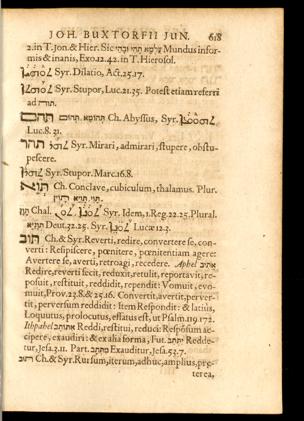 JOH. BUXTORFII JUN. 618
2. in T. Jon. & Hier. Sic Mundus infor-
mis & inanis, Exo. 12. 42. in T. Hierosol.
Syr. Dilatio, Act. 25. 17.
Syr. Stupor, Luc. 21. 25. Potest etiam referri
ad
Ch. Abyssus, Syr.
Luc. 8. 31.
תהר Syr. Mirari, admirari, stupere, obstu-
pescere.
Syr. Stupor. Marc. 16. 8.
תוא Ch. Conclave, cubiculum, thalamus. Plur.
Chal. Syr. Idem, 1. Reg. 22. 25. Plural.
Deut. 32. 25. Syr. Lucæ 12. 3.
תוב Ch. & Syr. Reverti, redire, convertere se, con-
verti: Resipiscere, pœnitere, pœnitentiam agere:
Avertere se, averti, retroagi, recedere. Aphel אתיב
Redire, reverti fecit, reduxit, retulit, reportavit, re-
posuit, restituit, reddidit, rependit: Vomuit, evo-
muit, Prov. 23. 8. & 25. 16. Convertit, avertit, perver-
tit, perversum reddidit: Item Respondit: & latius,
Loquutus, prolocutus, effatus est, ut Psalm. 119. 172.
Ithpahel Reddi, restitui, reduci: Responsum ac-
cipere, exaudiri: & ex alia forma, Fut. Redde-
tur, Jesa. 3. 11. Part. Exauditur, Jesa. 53. 7.
Ch. & Syr. Rursum, iterum, adhuc, amplius, præ-
terea,